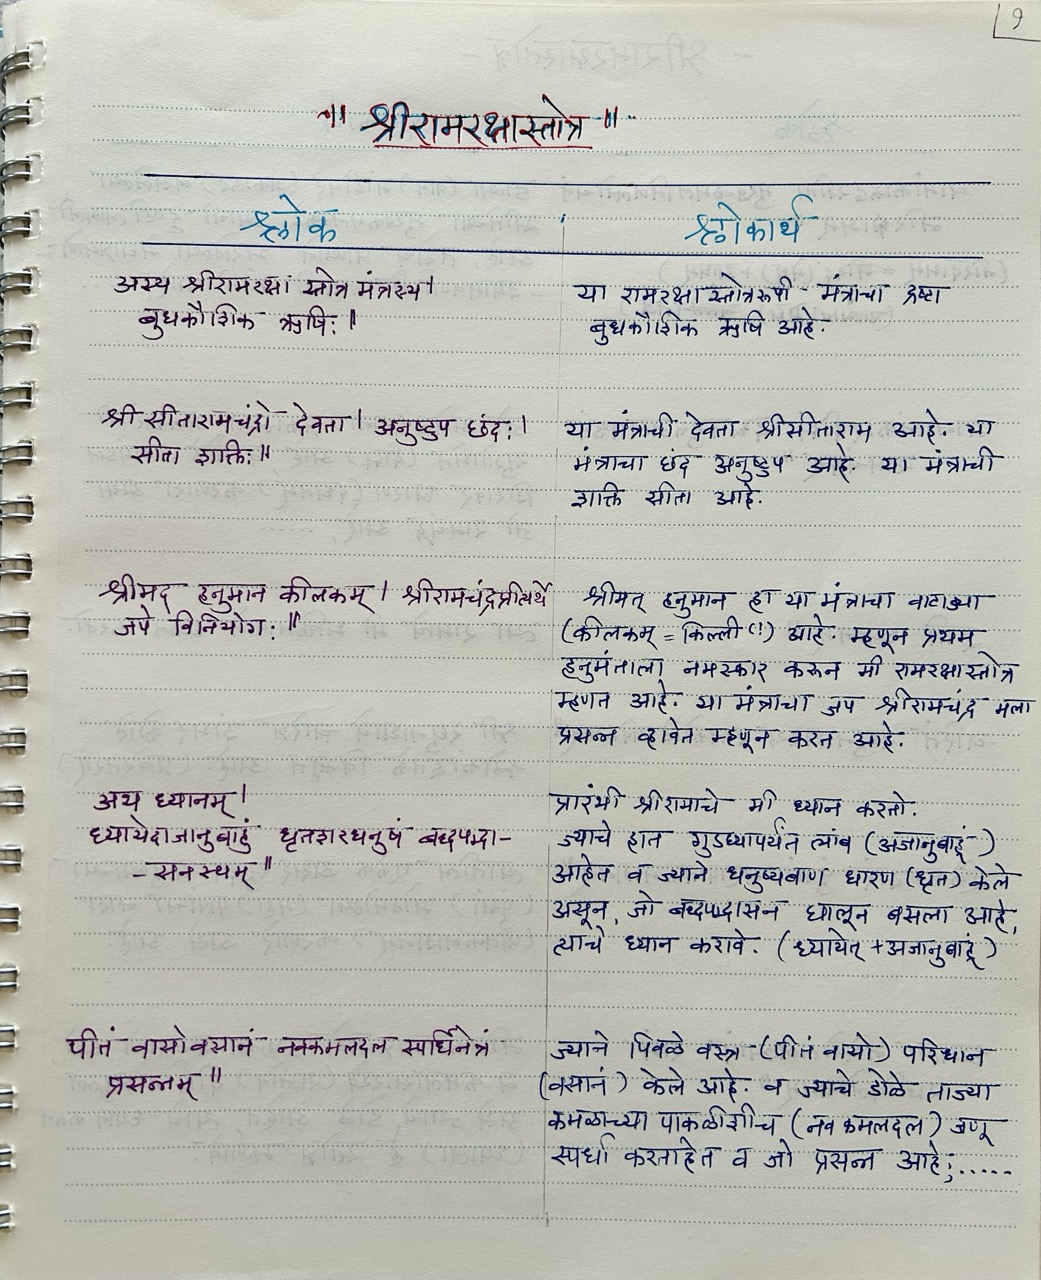 १
॥ श्रीरामरक्षास्तोत्र ॥
श्लोक
श्लोकार्थ
अस्य श्रीरामरक्षा स्तोत्र मंत्रस्य।
बुधकौशिक ऋषिः।
या रामरक्षा स्तोत्ररूपी मंत्राचा द्रष्टा
बुधकौशिक ऋषि आहे.
श्री सीतारामचंद्रो देवता। अनुष्टुप छंदः।
सीता शक्तिः॥
या मंत्राची देवता श्रीसीताराम आहे. या
मंत्राचा छंद अनुष्टुप आहे. या मंत्राची
शक्ति सीता आहे.
श्रीमद हनुमान कीलकम्। श्रीरामचंद्रप्रीत्यर्थे
जपे विनियोगः॥
श्रीमत् हनुमान हा या मंत्राचा वाटाड्या
(कीलकम् = किल्ली(!) आहे. म्हणून प्रथम
हनुमंताला नमस्कार करून मी रामरक्षास्तोत्र
म्हणत आहे. या मंत्राचा जप श्रीरामचंद्र मला
प्रसन्न व्हावेत म्हणून करत आहे.
अथ ध्यानम्।
ध्यायेदाजानुबाहुं धृतशरधनुषं बध्दपद्मा-
-सनस्थम्॥
प्रारंभी श्रीरामाचे मी ध्यान करतो.
ज्याचे हात गुडघ्यापर्यंत लांब (अजानुबाहूं)
आहेत व ज्याने धनुष्यबाण धारण (धृत) केले
असून, जो बध्दपद्मासन घालून बसला आहे,
त्याचे ध्यान करावे. (ध्यायेत् + अजानुबाहूं)
पीतं वासोवसानं नवकमलदल स्पर्धिनेत्रं
प्रसन्नम्॥
ज्याने पिवळे वस्त्र (पीतं वासो) परिधान
(वसानं) केले आहे. व ज्याचे डोळे ताज्या
कमळाच्या पाकळीशीच (नवकमलदल) जणू
स्पर्धा करताहेत व जो प्रसन्न आहे;.....